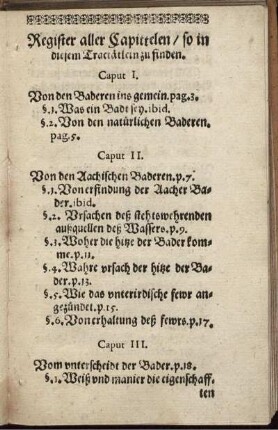 Register aller Capittelen / so in
diesem Tractätlein zu finden.
Caput I.
Von den Baderen ins gemein. pag. 3.
§. 1. Was ein Badt sey. ibid.
§. 2. Von den natürlichen Baderen.
pag. 5.
Caput II.
Von den Aachischen Baderen. p. 7.
§. 1. Von erfindung der Aacher Ba-
der. ibid.
§. 2. Vrsachen deß stehtswehrenden
außquellen deß Wassers. p. 9.
§. 3. Woher die hitze der Bader kom-
me. p. 11.
§. 4. Wahre vrsach der hitze der Ba-
der. p. 13.
§. 5. Wie das vnterirdische fewr an-
gezündet. p. 15.
§. 6. Von erhaltung deß fewrs. p. 17.
Caput III.
Vom vnterscheidt der Bader. p. 18.
§. 1. Weiß vnd manier die eigenschaff-
ten